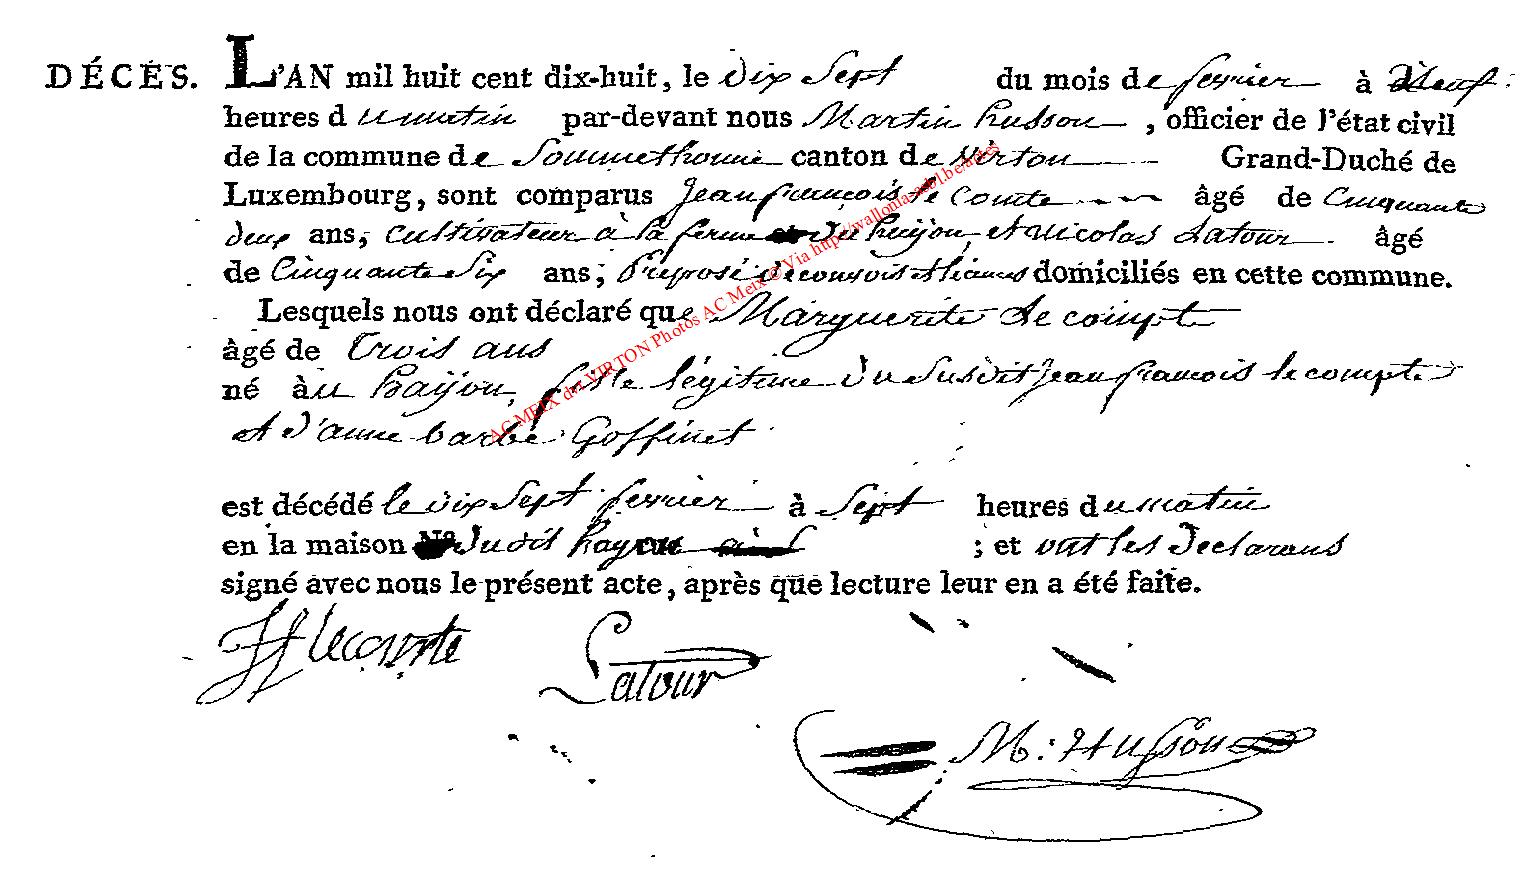 DÉCÈS. L'AN mil huit cent dix-huit, le dix sept du mois de fevrier à Neuf
heures du matin par-devant nous Martin husson, officier de l'état civil
de la commune de Sommethonne canton de virton Grand-Duché de
Luxembourg, sont comparus Jean françois le Comte âgé de Cinquante
deux ans, cultivateur à la ferme du hayon, et Nicolas Latour âgé
de Cinquante Six ans, Préposé domiciliés en cette commune.
Lesquels nous ont déclaré que Marguerite Le compte
âgé de trois ans
né au hayon, fille légitime du Susdit Jean francois le compte
et d'anne barbe Goffinet
est décédé le dix Sept fevrier à Sept heures du matin
en la maison Nº dudit hayon ; et ont les Declarans
signé avec nous le présent acte, après que lecture leur en a été faite.
JF lecomte Latour
M: Husson
AC MEIX dvt VIRTON Photos AC Meix © Via http://wallonia.ibbl.be/actes